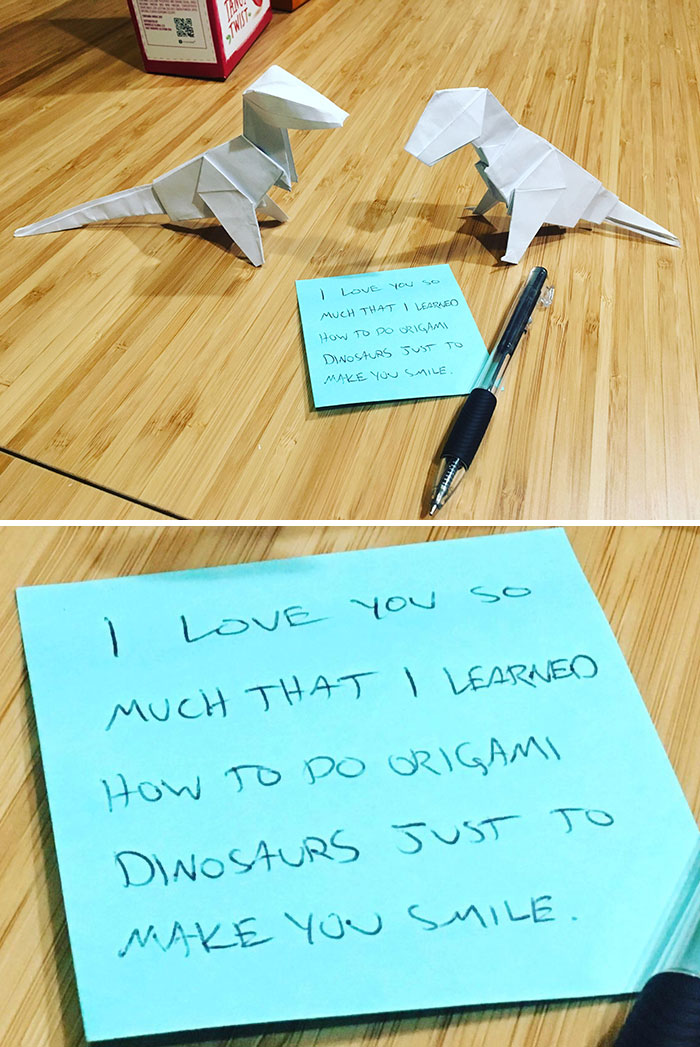 TANGO
TWIST
I LOVE YOU SO
MUCH THAT I LEARNED
HOW TO DO ORIGAMI
DINOSAURS JUST TO
MAKE YOU SMILE.
I LOVE YOU SO
MUCH THAT I LEARNED
HOW TO DO ORIGAMI
DINOSAURS JUST TO
MAKE YOU SMILE.